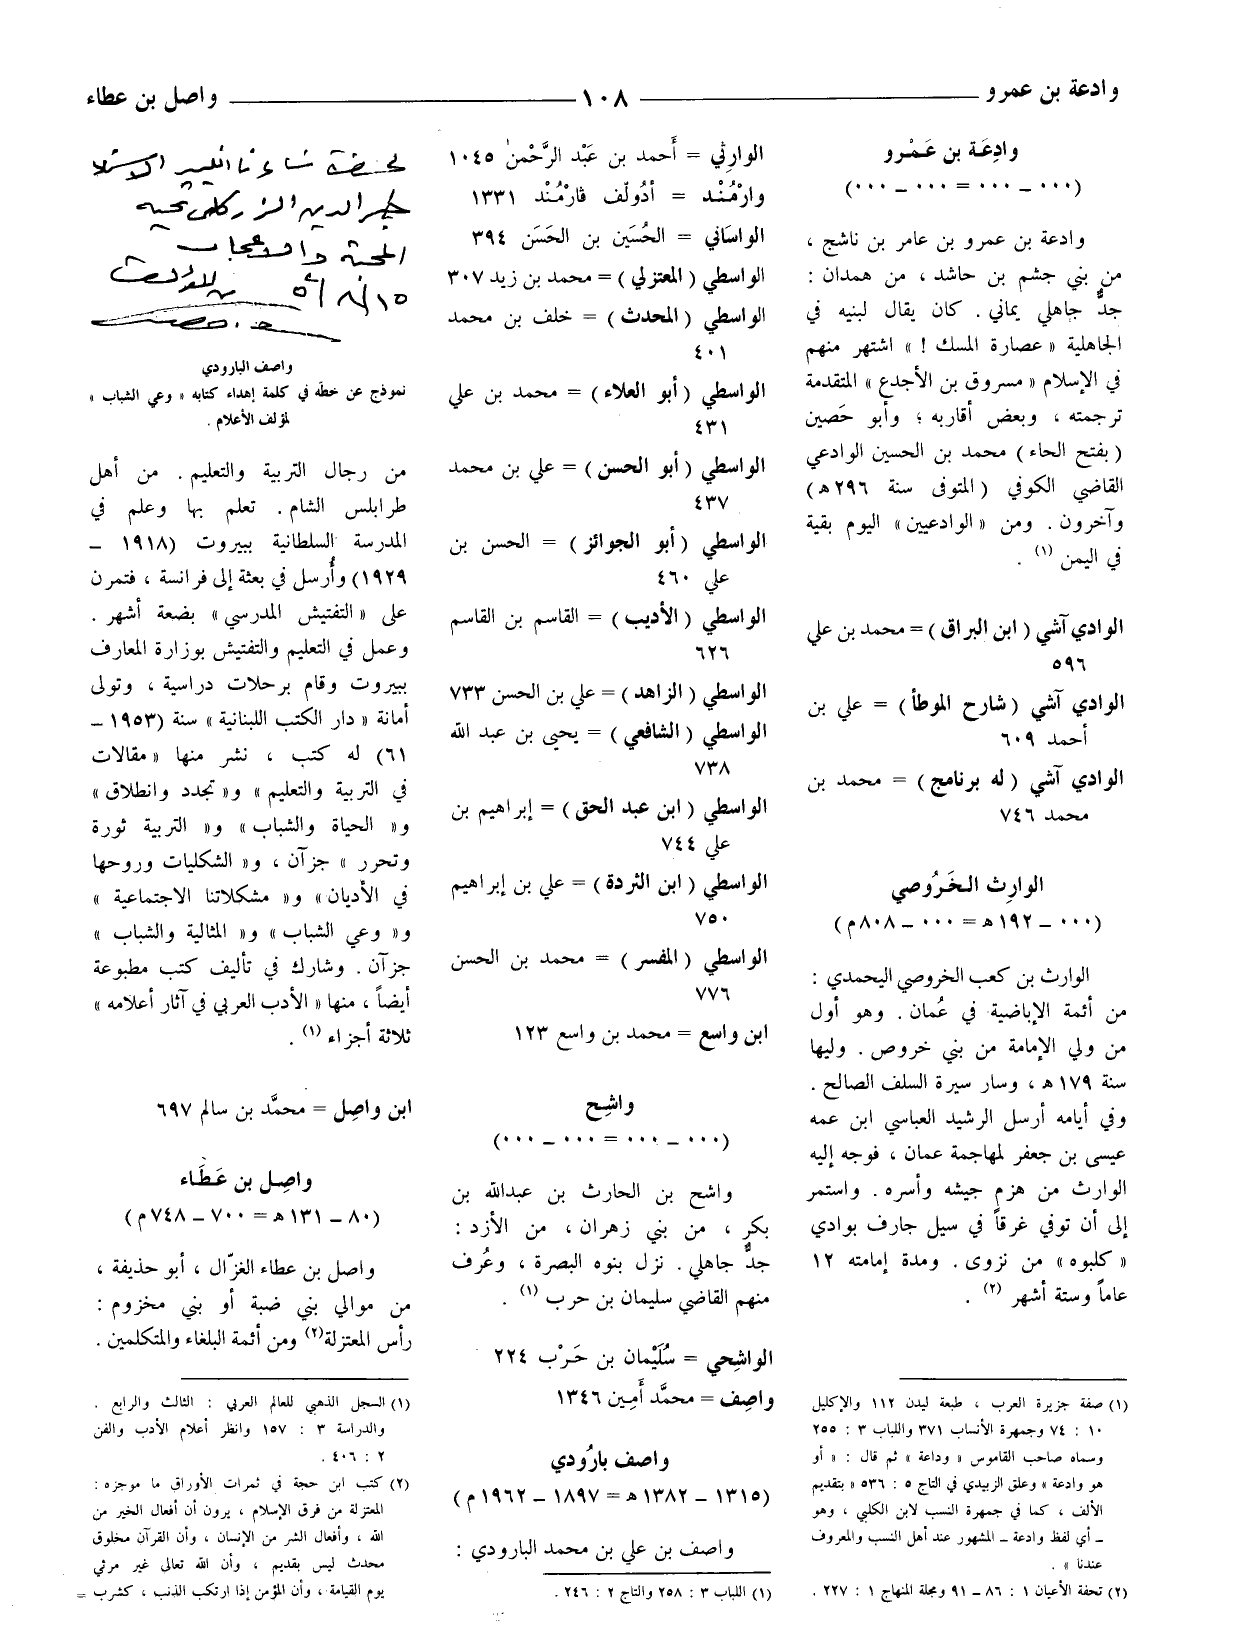 وادعة بن عمرو ١٠٨ واصل بن عطاء
وادِعَة بن عَمْرو
(٠٠٠ ــ ٠٠٠ = ٠٠٠ ــ ٠٠٠)
وادعة بن عمرو بن عامر بن ناشج ،
من بني جشم بن حاشد ، من همدان :
جدٌّ جاهلي يماني . كان يقال لبنيه في
الجاهلية « عصارة المسك ! » اشتهر منهم
في الإسلام « مسروق بن الأجدع » المتقدمة
ترجمته ، وبعض أقاربه ؛ وأبو حَصين
( بفتح الحاء ) محمد بن الحسين الوادعي
القاضي الكوفي ( المتوفى سنة ٢٩٦ هـ)
وآخرون . ومن « الوادعيين » اليوم بقية
في اليمن (١) .
الوادي آشي ( ابن البراق ) = محمد بن علي
٥٩٦
الوادي آشي ( شارح الموطأ ) = علي بن
أحمد ٦٠٩
الوادي آشي ( له برنامج ) = محمد بن
محمد ٧٤٦
الوارِث الخَرُوصي
(٠٠٠ ــ ١٩٢ هـ = ٠٠٠ ــ ٨٠٨ م )
الوارث بن كعب الخروصي اليحمدي :
من أئمة الإباضية في عُمان . وهو أول
من ولي الإمامة من بني خروص . وليها
سنة ١٧٩ هـ ، وسار سيرة السلف الصالح .
وفي أيامه أرسل الرشيد العباسي ابن عمه
عيسى بن جعفر لمهاجمة عمان ، فوجه إليه
الوارث من هزم جيشه وأسره . واستمر
إلى أن توفي غرقاً في سيل جارف بوادي
« كلبوه » من نزوى . ومدة إمامته ١٢
عاماً وستة أشهر (٢) .
(١) صفة جزيرة العرب ، طبعة ليدن ١١٢ والإكليل
١٠ : ٧٤ وجمهرة الأنساب ٣٧١ واللباب ٣ : ٢٥٥
وسماه صاحب القاموس « وداعة » ثم قال : « أو
هو وادعة » وعلق الزبيدي في التاج ٥ : ٥٣٦ « بتقديم
الألف ، كما في جمهرة النسب لابن الكلبي ، وهو
ــ أي لفظ وادعة ــ المشهور عند أهل النسب والمعروف
عندنا » .
(٢) تحفة الأعيان ١ : ٨٦ ــ ٩١ ومجلة المنهاج ١ : ٢٢٧ .
الوارِثي = أَحمد بن عَبْد الرَّحْمنْ ١٠٤٥
وارْمُنْد = أدُولْف ڤارْمُنْد ١٣٣١
الواسَاني = الحُسَين بن الحَسَن ٣٩٤
الواسطي ( المعتزلي ) = محمد بن زيد ٣٠٧
الواسطي ( المحدث ) = خلف بن محمد
٤٠١
الواسطي ( أبو العلاء ) = محمد بن علي
٤٣١
الواسطي ( أبو الحسن ) = علي بن محمد
٤٣٧
الواسطي ( أبو الجوائز ) = الحسن بن
علي ٤٦٠
الواسطي ( الأديب ) = القاسم بن القاسم
٦٢٦
الواسطي ( الزاهد ) = علي بن الحسن ٧٣٣
الواسطي ( الشافعي ) = يحيى بن عبد الله
٧٣٨
الواسطي ( ابن عبد الحق ) = إبراهيم بن
علي ٧٤٤
الواسطي ( ابن الثردة ) = علي بن إبراهيم
٧٥٠
الواسطي ( المفسر ) = محمد بن الحسن
٧٧٦
ابن واسع = محمد بن واسع ١٢٣
واشِح
(٠٠٠ ــ ٠٠٠ = ٠٠٠ ــ ٠٠٠)
واشح بن الحارث بن عبدالله بن
بكر ، من بني زهران ، من الأزد :
جدٌّ جاهلي . نزل بنوه البصرة ، وعُرف
منهم القاضي سليمان بن حرب (١) .
الواشِحي = سُلَيْمان بن حَرْب ٢٢٤
واصِف = محمَّد أَمِين ١٣٤٦
واصف بارُودي
(١٣١٥ ــ ١٣٨٢ هـ = ١٨٩٧ ــ ١٩٦٢ م )
واصف بن علي بن محمد البارودي :
(١) اللباب ٣ : ٢٥٨ والتاج ٢ : ٢٤٦ .
خير الدين الزركلي
٥١/٨/١٥
واصف البارودي
نموذج عن خطه في كلمة إهداء كتابه « وعي الشباب »
لمؤلف الأعلام .
من رجال التربية والتعليم . من أهل
طرابلس الشام . تعلم بها وعلم في
المدرسة السلطانية ببيروت (١٩١٨ ــ
١٩٢٩) وأُرسل في بعثة إلى فرانسة ، فتمرن
على « التفتيش المدرسي » بضعة أشهر .
وعمل في التعليم والتفتيش بوزارة المعارف
ببيروت وقام برحلات دراسية ، وتولى
أمانة « دار الكتب اللبنانية » سنة (١٩٥٣ ــ
٦١) له كتب ، نشر منها « مقالات
في التربية والتعليم » و« تجدد وانطلاق »
و« الحياة والشباب » و« التربية ثورة
وتحرر » جزآن ، و« الشكليات وروحها
في الأديان » و« مشكلاتنا الاجتماعية »
و« وعي الشباب » و« المثالية والشباب »
جزآن . وشارك في تأليف كتب مطبوعة
أيضاً ، منها « الأدب العربي في آثار أعلامه »
ثلاثة أجزاء (١) .
ابن واصِل = محمَّد بن سالم ٦٩٧
واصِل بن عَطَاء
(٨٠ ــ ١٣١ هـ = ٧٠٠ ــ ٧٤٨ م )
واصل بن عطاء الغزّال ، أبو حذيفة ،
من موالي بني ضبة أو بني مخزوم :
رأس المعتزلة (٢) ومن أئمة البلغاء والمتكلمين .
(١) السجل الذهبي للعالم العربي : الثالث والرابع .
والدراسة ٣ : ١٥٧ وانظر أعلام الأدب والفن
٢ : ٤٠٦ .
(٢) كتب ابن حجة في ثمرات الأوراق ما موجزه :
المعتزلة من فرق الإسلام ، يرون أن أفعال الخير من
الله ، وأفعال الشر من الإنسان ، وأن القرآن مخلوق
محدث ليس بقديم ، وأن الله تعالى غير مرئي
يوم القيامة ، وأن المؤمن إذا ارتكب الذنب ، كشرب =